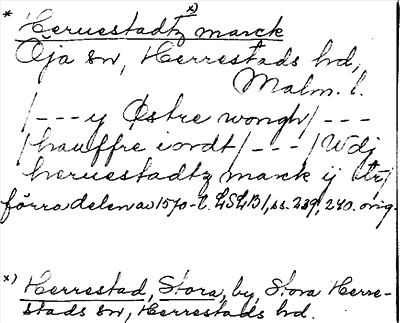 * Heruestadtz marck x)
Öja sn, Herrestads hd,
Malm. l.
/---y Østre wongh/---
/hauffre iordt/---/Udj
heruestadtz marck ij str/
förra delen av 1570-t. LSLB1, ss. 239, 240. orig.
x) Herrestad, Stora, by, Stora Herre-
stads sn, Herrestads hd.